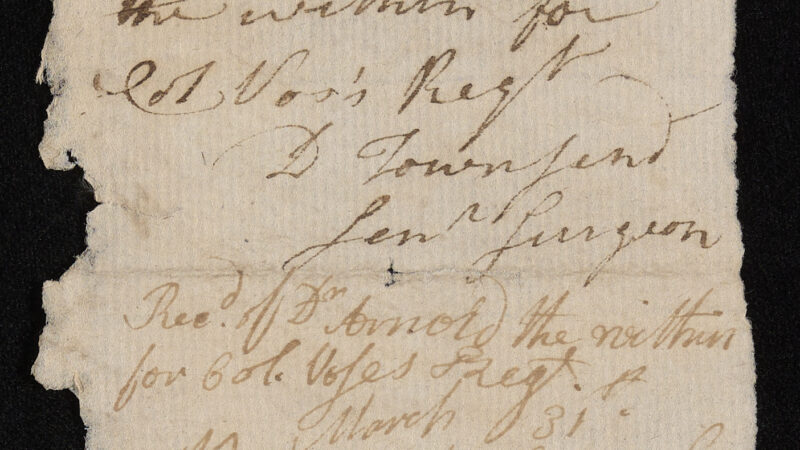 the within for
Col Vos's Regt
D Townsend
Senr Surgeon
Recd. of Dr Arnold the within
for Col. Voses Regt.
March 31st